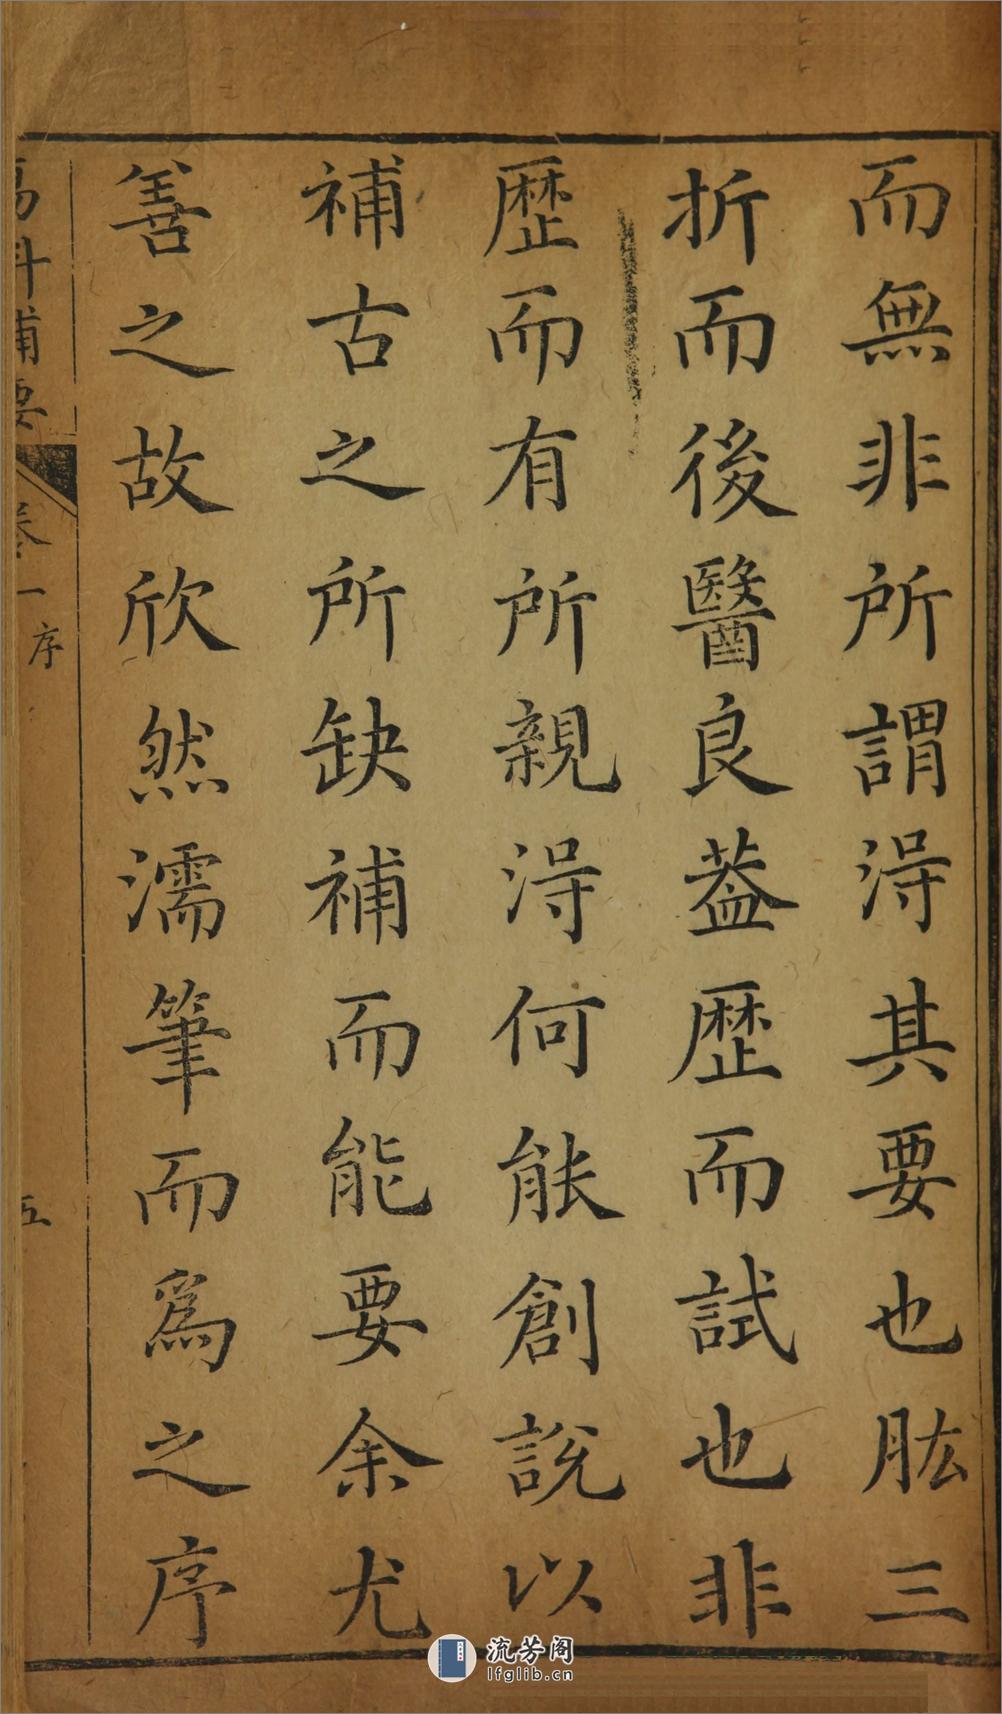 而無非所謂淂其要也肱三
折而後醫良葢歴而試也非
歴而有所親淂何能創說以
補古之所缺補而能要余尤
善之故欣然濡筆而爲之序
瘍科補要 卷一 序 五
流芳阁
lfglib.cn